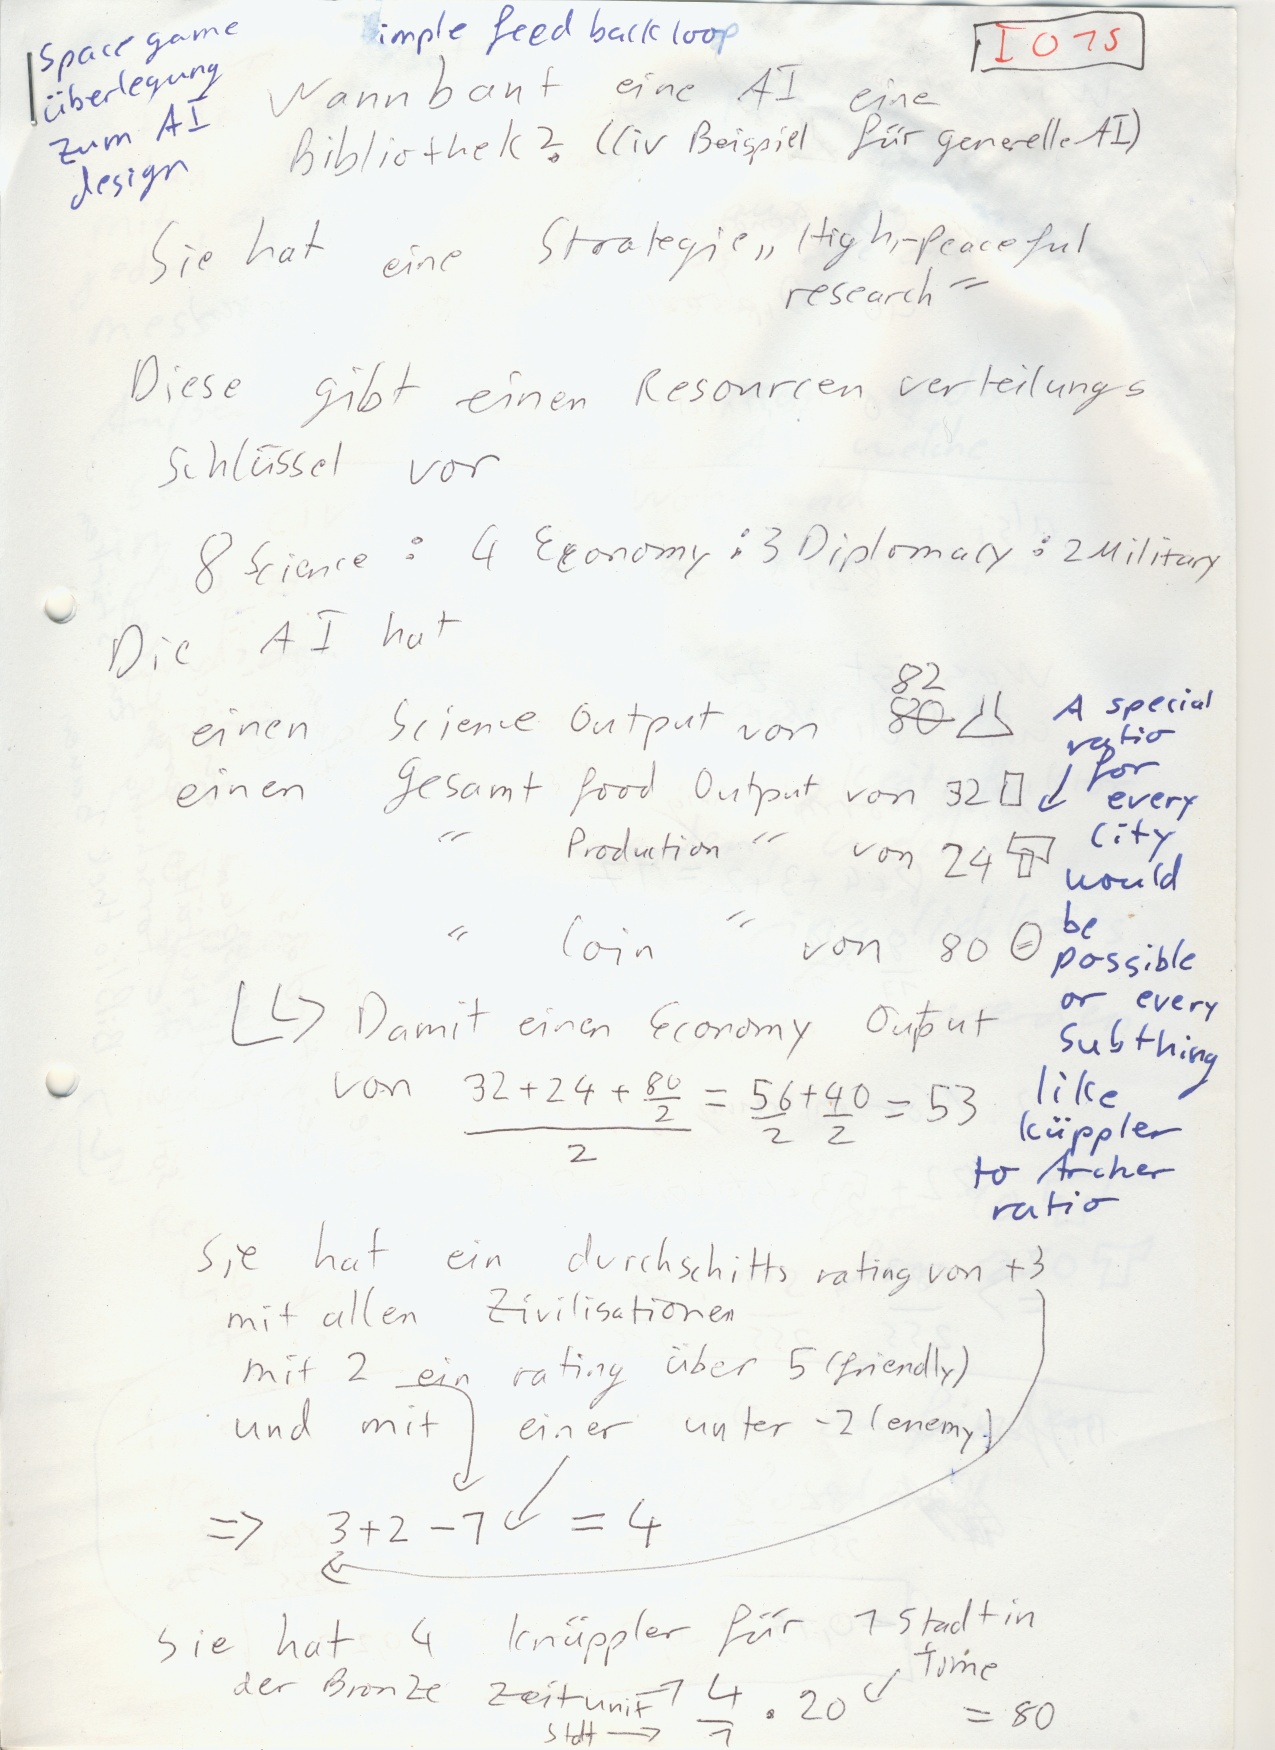 Space game
überlegung
zum AI
design
simple feed back loop
I 015
Wann baut eine AI eine
Bibliothek? (Civ Beispiel für generelle AI)
Sie hat eine Strategie „High-Peaceful
research"
Diese gibt einen Resourcen verteilungs
schlüssel vor
8 Science : 4 Economy : 3 Diplomacy : 2 Military
Die AI hat
82
einen Science Output von 80
einen Gesamt food Output von 32
" Production " von 24
" Coin " von 80
A special
ratio
for
every
City
would
be
possible
or every
Subthing
like
küppler
to Archer
ratio
Damit einen Economy Output
von (32 + 24 + 80/2)/2 = 56/2 + 40/2 = 53
Sie hat ein durchschitts rating von +3
mit allen Zivilisationen
mit 2 ein rating über 5 (friendly)
und mit einer unter -2 (enemy)
=> 3 + 2 - 1 = 4
Sie hat 4 knüppler für 1 Stadt in
der Bronze Zeit unit → 4/1 · 20 = 80
time
Stdt →